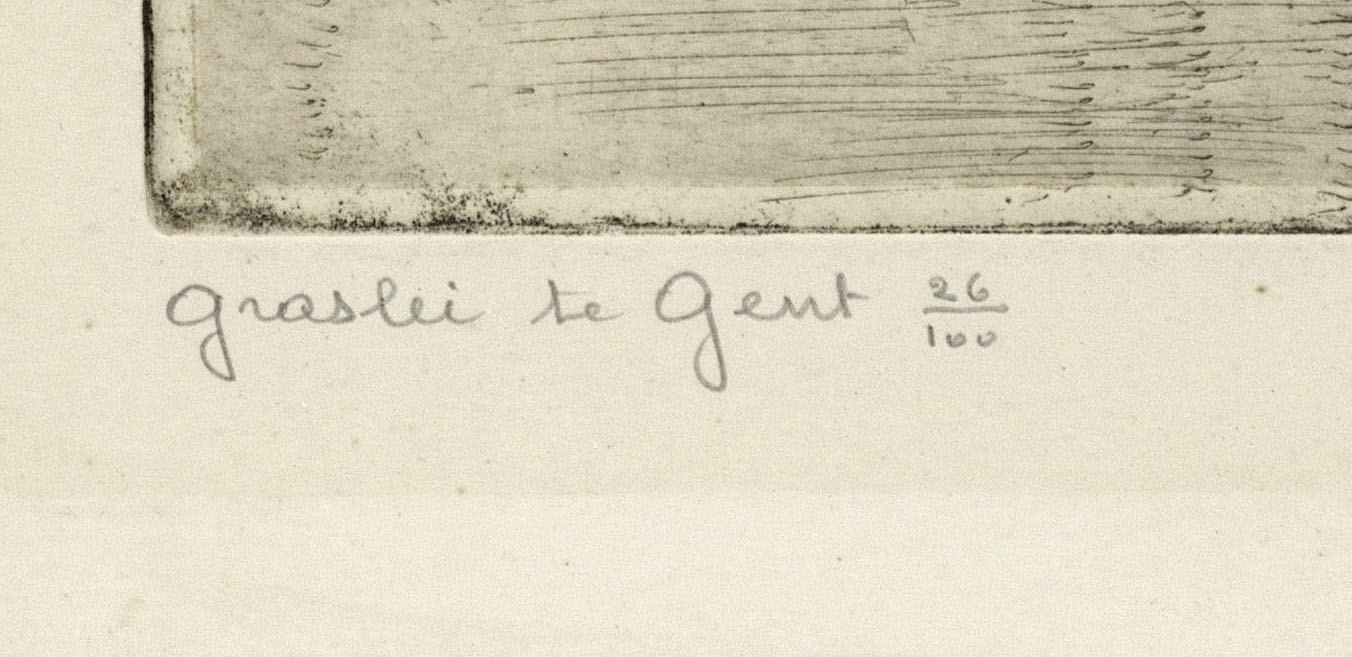 Graslei te Gent 26/100